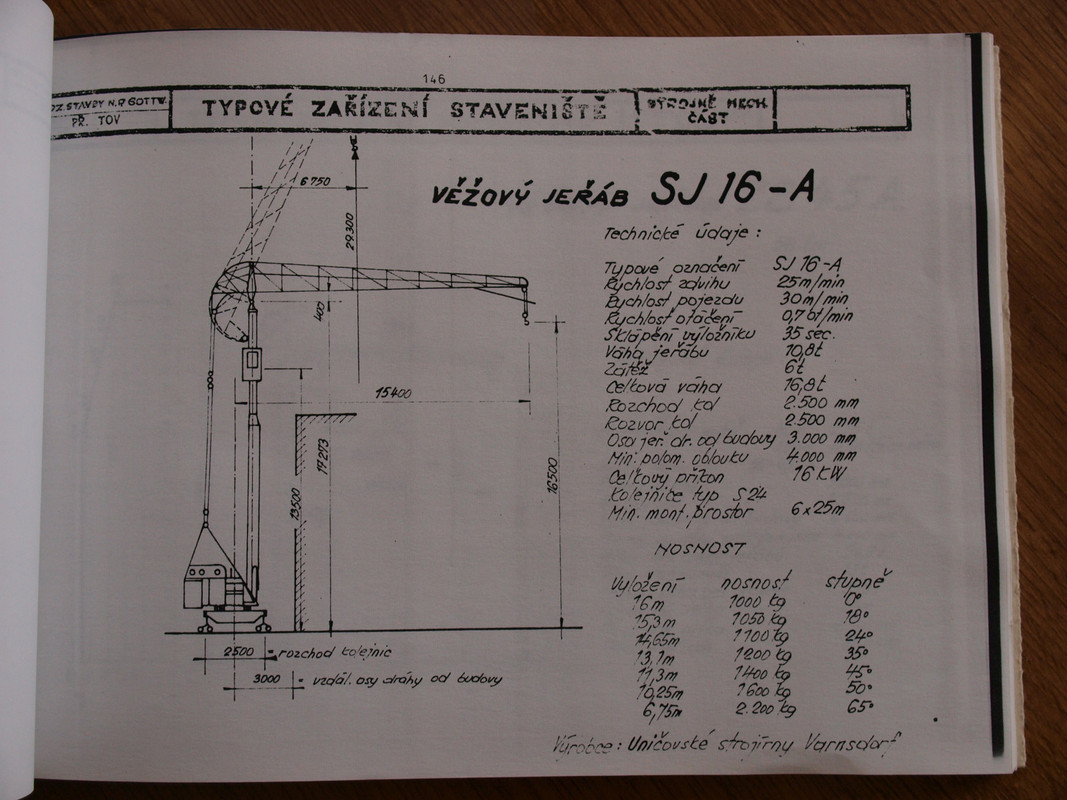 146
OZ. STAVBY N.P. GOTTW.
PŘ. TOV
TYPOVÉ ZAŘÍZENÍ STAVENIŠTĚ
STROJNĚ MECH.
ČÁST
VĚŽOVÝ JEŘÁB SJ 16-A
Technické údaje:
Typové označení SJ 16-A
Rychlost zdvihu 25m/min
Rychlost pojezdu 30m/min
Rychlost otáčení 0,7 ot/min
Sklápění výložníku 35 sec.
Váha jeřábu 10,8t
Zátěž 6t
Celková váha 16,8t
Rozchod kol 2.500 mm
Rozvor kol 2.500 mm
Osa jeř. dr. od budovy 3.000 mm
Min. polom. oblouku 4.000 mm
Celkový příkon 16 KW
Kolejnice typ S24
Min. mont. prostor 6x25m
NOSNOST
Vyložení nosnost stupně
16m 1000 kg 0°
15,3m 1050 kg 18°
14,65m 1100 kg 24°
13,1m 1200 kg 35°
11,3m 1400 kg 45°
10,25m 1600 kg 50°
6,75m 2.200 kg 65°
Výrobce: Uničovské strojírny Varnsdorf
6750
29.300
400
15400
17273
13500
16500
2500 = rozchod kolejnic
3000 = vzdál. osy dráhy od budovy